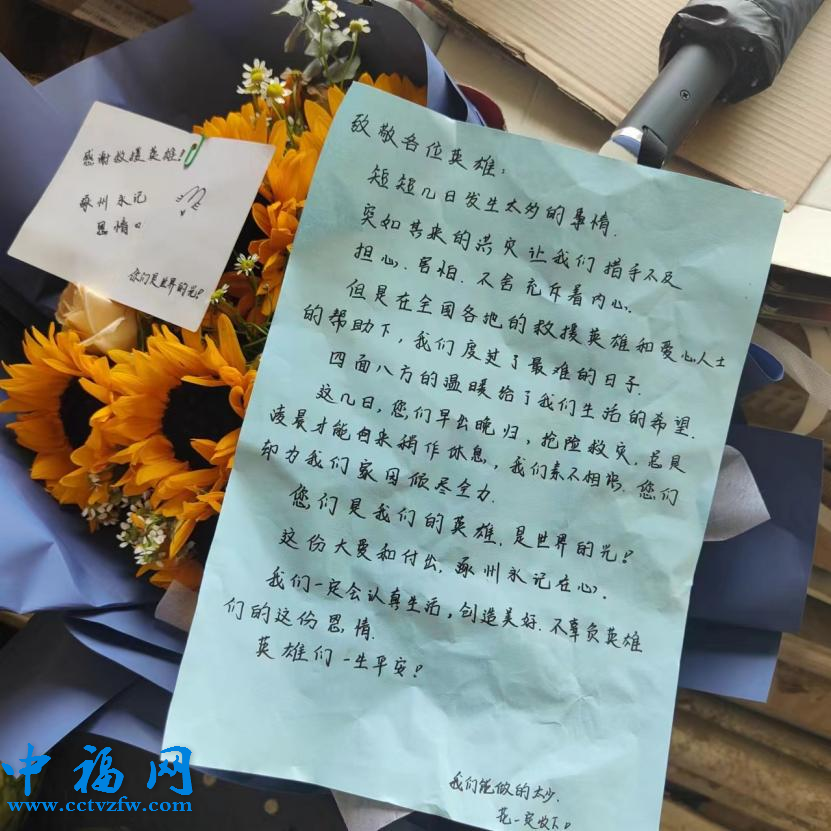 感谢救援英雄!
涿州永记
恩情
你们是世界的光!
致敬各位英雄:
短短几日发生太多的事情.
突如其来的洪灾让我们措手不及
担心.害怕.不舍充斥着内心.
但是在全国各地的救援英雄和爱心人士
的帮助下,我们度过了最难的日子.
四面八方的温暖给了我们生活的希望.
这几日,您们早出晚归,抢险救灾.总是
凌晨才能回来稍作休息,我们素不相识.您们
却为我们家园倾尽全力.
您们是我们的英雄,是世界的光!
这份大爱和付出,涿州永记在心.
我们一定会认真生活,创造美好.不辜负英雄
们的这份恩情.
英雄们一生平安!
我们能做的太少.
花一定收下!
中福网
www.cctvzfw.com